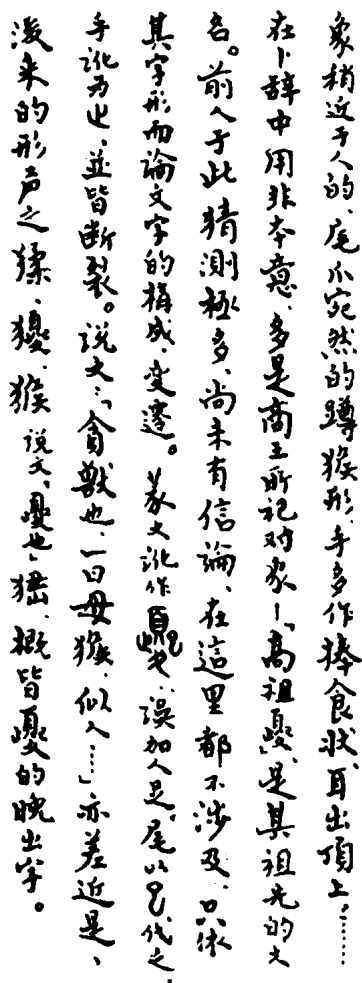 象稍近于人的、尾爪宛然的蹲猴形、手多作捧食状、耳出頂上。……
在卜辞中用非本意、多是商王所祀对象—「高祖夒」、是其祖先的文
名。前人于此猜測極多、尚未有信論、在這里都不涉及、只依
其字形而論文字的構成、变遷。篆文訛作夒、误加人足、尾以巳代之、
手訛为止、並皆断裂。说文:「貪獸也、一曰母猴、似人……」亦差近是、
後来的形声之猱、獶、猴 说文、夒也、猶、概皆夒的晚出字。